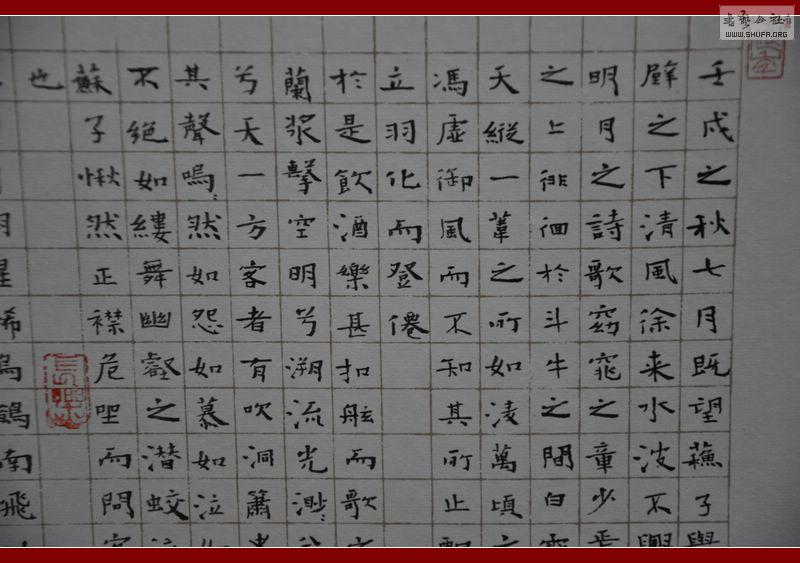 壬戌之秋七月既望蘇子與
壁之下清風徐来水波不興
明月之詩歌窈窕之章少焉
之上徘徊於斗牛之間白露
天縱一葦之所如淩萬頃之
馮虛御風而不知其所止飄
立羽化而登僊
於是飲酒樂甚扣舷而歌之
蘭漿擊空明兮溯流光渺〻兮
兮天一方客者有吹洞簫者
其聲嗚〻然如怨如慕如泣如
不絕如縷舞幽壑之潛蛟泣
蘇子愀然正襟危坐而問客
也
明星稀烏鵲南飛
WWW.SHUFA.ORG